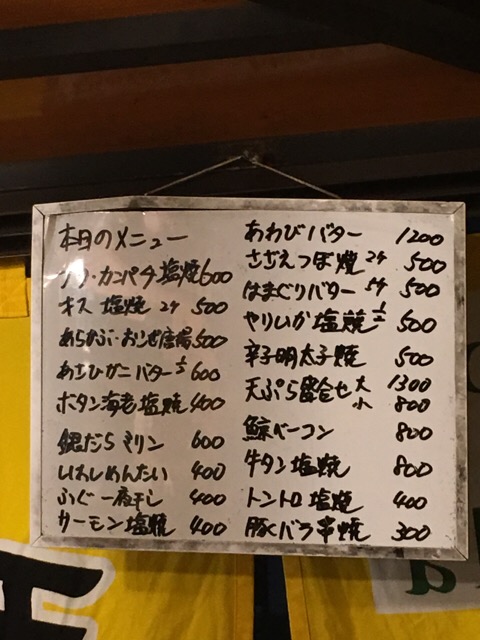 本日のメニュー
ブリ・カンパチ塩焼 600
キス 塩焼 2ケ 500
あらかぶ・おこぜ唐揚 500
あさひガニバター ½ 600
ボタン海老塩焼 400
銀だらミリン 600
いわしめんたい 400
ふぐ一夜干し 400
サーモン塩焼 400
あわびバター 1200
さざえつぼ焼 2ケ 500
はまぐりバター 5ケ 500
やりいか塩焼 ½ 500
辛子明太子焼 500
天ぷら盛合せ 大 1300
小 800
鯨ベーコン 800
牛タン塩焼 800
トントロ塩焼 400
豚バラ串焼 300